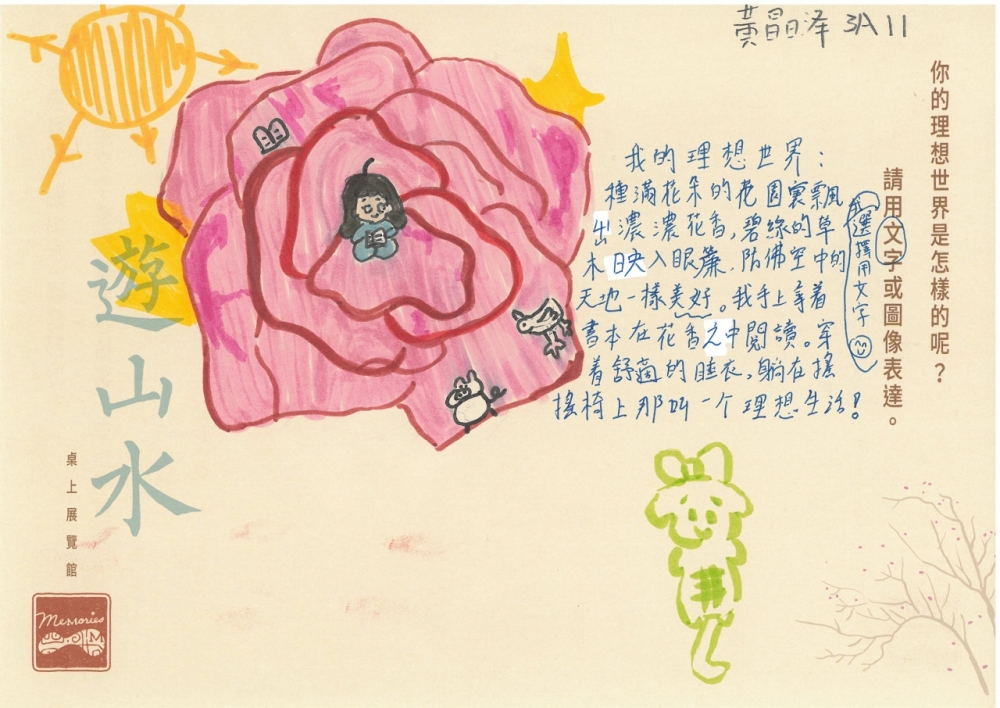 黃昌泽 3A 11
你的理想世界是怎樣的呢？
請用文字或圖像表達。
選擇用文字
我的理想世界：
種滿花朵的花園裏飄
出濃濃花香，碧綠的草
木映入眼簾，彷佛空中的
天地一樣美好。我手上拿着
書本在花香之中閱讀。穿
着舒適的睡衣，躺在搖
搖椅上那叫一个理想生活！
遊山水
桌上展覽館
Memories